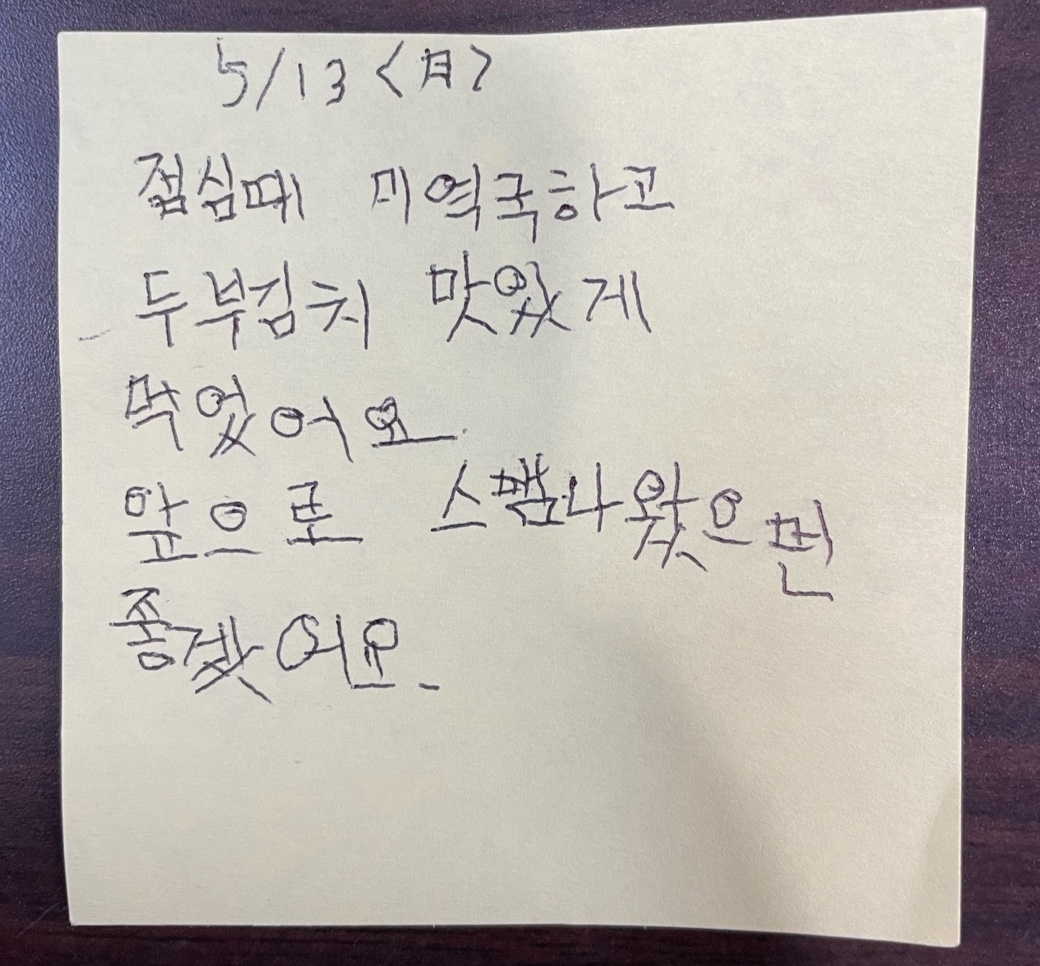 5/13 <日>
점심때 미역국하고
두부김치 맛있게
먹었어요.
앞으로 스팸나왔으면
좋겠어요.